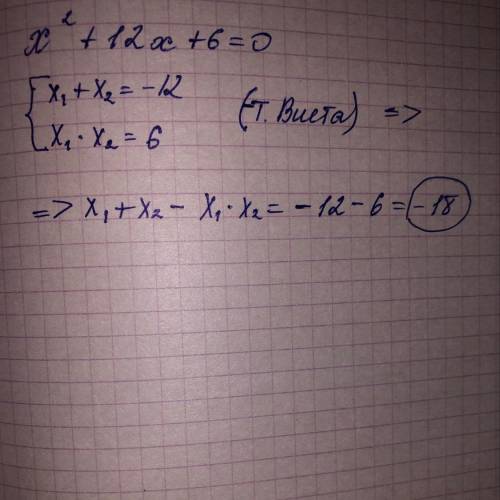 x² + 12x + 6 = 0
x₁ + x₂ = -12
x₁ · x₂ = 6 (т. Виета) =>
=> x₁ + x₂ - x₁ · x₂ = -12 - 6 = -18